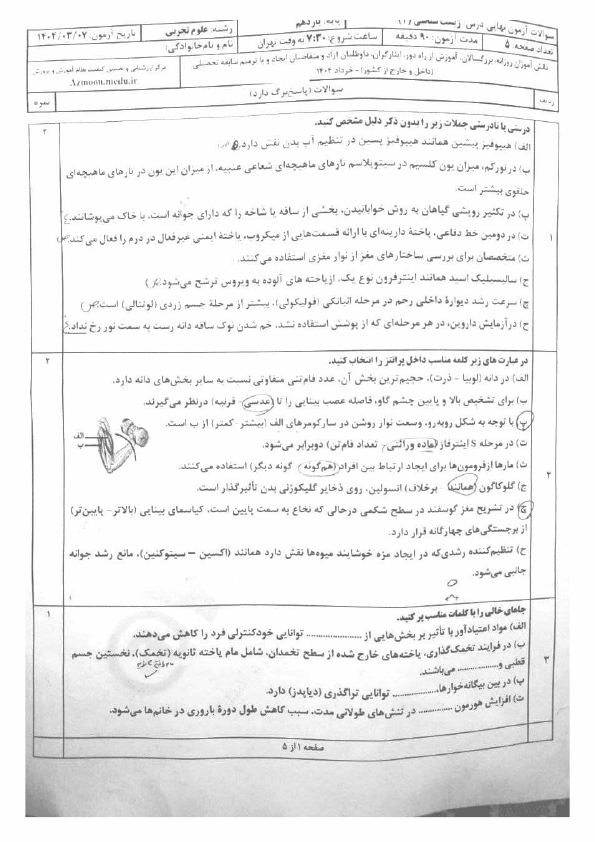 سوالات آزمون نهایی درس: زیست شناسی (۲)
پایه: یازدهم
رشته: علوم تجربی
تاریخ آزمون: ۱۴۰۴/۰۳/۰۷
تعداد صفحه: ۵
مدت آزمون: ۹۰ دقیقه
ساعت شروع: ۷:۳۰ به وقت تهران
نام و نام‌خانوادگی:
دانش آموزان روزانه، بزرگسالان، آموزش از راه دور، ایثارگران، داوطلبان آزاد و متقاضیان ایجاد و یا ترمیم سابقه تحصیلی
(داخل و خارج از کشور) - خرداد ۱۴۰۴
مرکز ارزشیابی و تضمین کیفیت نظام آموزش و پرورش
Azmoon.medu.ir
ردیف
سوالات (پاسخ‌برگ دارد)
نمره
درستی یا نادرستی جملات زیر را بدون ذکر دلیل مشخص کنید.
۲
الف) هیپوفیز پیشین همانند هیپوفیز پسین در تنظیم آب بدن نقش دارد.
ب) در نور کم، میزان یون کلسیم در سیتوپلاسم تارهای ماهیچه‌ای شعاعی عنبیه، از میزان این یون در تارهای ماهیچه‌ای
حلقوی بیشتر است.
پ) در تکثیر رویشی گیاهان به روش خواباندین، بخشی از ساقه یا شاخه را که دارای جوانه است، با خاک می‌پوشانند.
۱
ت) در دومین خط دفاعی، یاخته دارینه‌ای با ارائه قسمت‌هایی از میکروب، یاخته ایمنی غیرفعال در درم را فعال می‌کند.
ث) متخصصان برای بررسی ساختارهای مغز از نوار مغزی استفاده می‌کنند.
ج) سالیسیلیک اسید همانند اینترفرون نوع یک، از یاخته های آلوده به ویروس ترشح می‌شود.
چ) سرعت رشد دیوارهٔ داخلی رحم در مرحله انبانکی (فولیکولی)، بیشتر از مرحلهٔ جسم زردی (لوتئالی) است.
ح) در آزمایش داروین، در هر مرحله‌ای که از پوشش استفاده نشد، خم شدن نوک ساقه دانه رست به سمت نور رخ نداد.
در عبارت های زیر کلمه مناسب داخل پرانتز را انتخاب کنید.
۲
الف) در دانه (لوبیا - ذرت)، حجیم‌ترین بخش آن، عدد فام‌تنی متفاوتی نسبت به سایر بخش‌های دانه دارد.
ب) برای تشخیص بالا و پایین چشم گاو، فاصله عصب بینایی را تا (عدسی - قرنیه) درنظر می‌گیرند.
پ) با توجه به شکل روبه‌رو، وسعت نوار روشن در سارکومرهای الف (بیشتر - کمتر) از ب است.
الف
ب
ت) در مرحله S اینترفاز (ماده وراثتی - تعداد فام‌تن) دوبرابر می‌شود.
ث) مارها از فرومون‌ها برای ایجاد ارتباط بین افراد (هم‌گونه - گونه دیگر) استفاده می‌کنند.
۲
ج) گلوکاگون (همانند - برخلاف) انسولین، روی ذخایر گلیکوژنی بدن تأثیرگذار است.
چ) در تشریح مغز گوسفند در سطح شکمی درحالی که نخاع به سمت پایین است، کیاسمای بینایی (بالاتر - پایین‌تر)
از برجستگی‌های چهارگانه قرار دارد.
ح) تنظیم‌کننده رشدی‌که در ایجاد مزه خوشایند میوه‌ها نقش دارد همانند (اکسین - سیتوکنین)، مانع رشد جوانه
جانبی می‌شود.
جاهای خالی را با کلمات مناسب پر کنید.
۱
الف) مواد اعتیادآور با تأثیر بر بخش‌هایی از ............ توانایی خودکنترلی فرد را کاهش می‌دهند.
ب) در فرایند تخمک‌گذاری، یاخته‌های خارج شده از سطح تخمدان، شامل مام یاخته ثانویه (تخمک)، نخستین جسم
قطبی و ............ می‌باشند.
۳
پ) در بین بیگانه‌خوارها، ............ توانایی تراگذری (دیاپدز) دارد.
ت) افزایش هورمون ............ در تنش‌های طولانی مدت، سبب کاهش طول دورهٔ باروری در خانم‌ها می‌شود.
صفحه ۱ از ۵